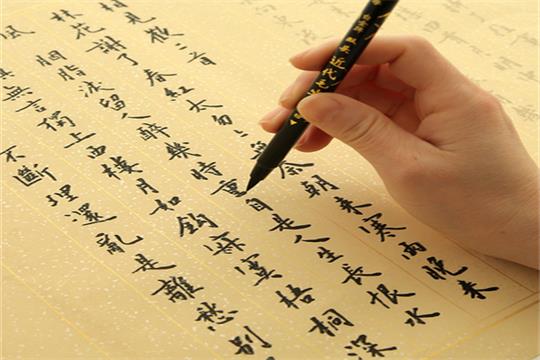 相見歡二首
林花謝了春紅太匆匆無奈朝來寒雨晚來
胭脂淚留人醉幾時重自是人生長恨水
風
無言獨上西樓月如鉤寂寞梧桐深
不斷理還亂是離愁別
近代